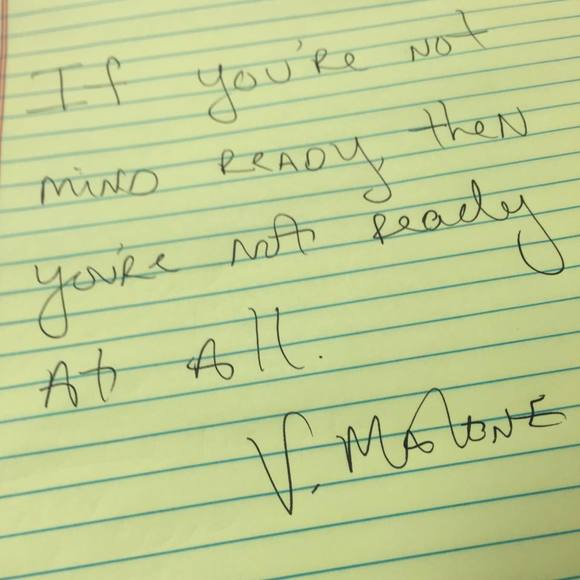 If you're not
mind ready, then
you're not ready
at all.
V. Malone